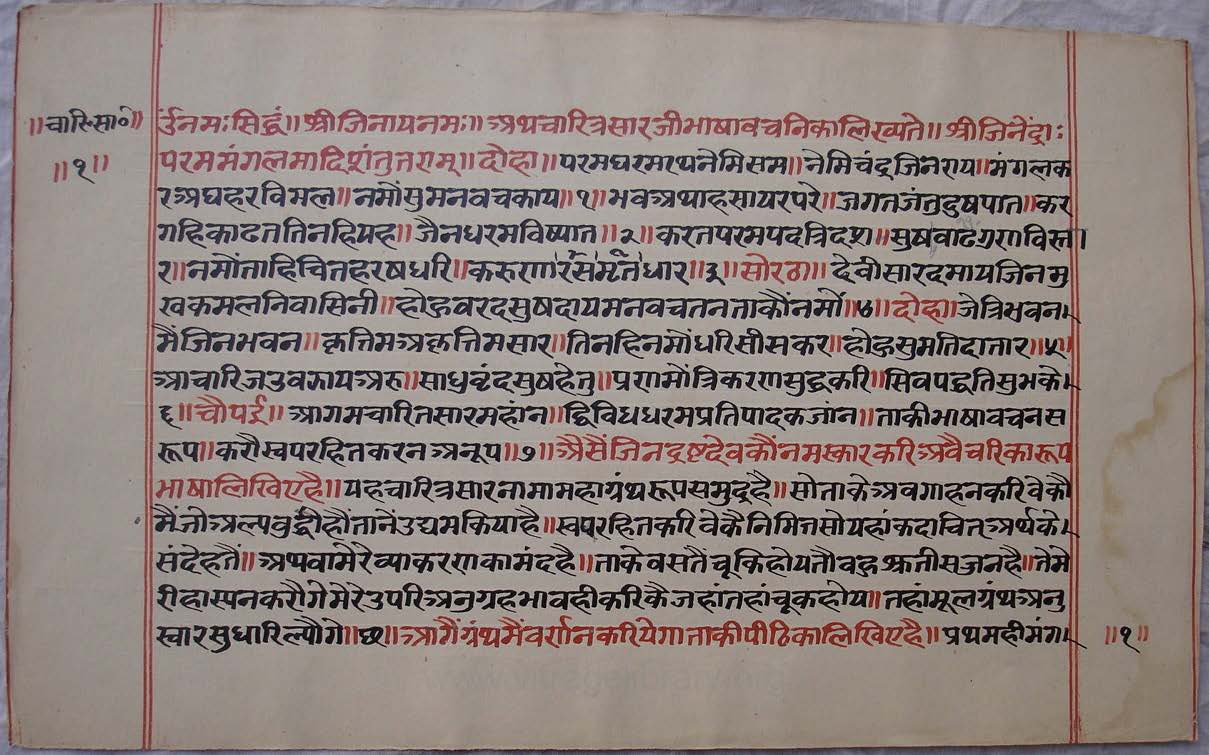 ॥चारि॰सा॰॥ र्उंनमःसिद्धं॥श्रीजिनायनमः॥अथचारित्रसारजीभाषावचनिकालिख्यते॥श्रीजिनेंद्राः
॥१॥ परममंगलमादिशंतुतराम्॥दोहा॥परमधरमरथनेमिसम॥नेमिचंद्रजिनराय॥मंगलक
रअघहरविमल॥नमौंसुमनवचकाय॥१॥भवअथाहसायरपरे॥जगतजंतुदुषपात॥कर
गहिकाढततिनहियह॥जैनधरमविष्यात॥२॥करतपरमपदत्रिदश॥सुषवाढगुराविस्ता
र॥नमौंताहिचितहरषधरि॥करुणारसमृतधार॥३॥सोरठा॥देवीसारदमायजिनमु
खकमलनिवासिनी॥होहुवरदसुषदायमनवचतनताकौंनमौं॥४॥दोहा॥जेत्रिभवन
मैंजिनभवन॥कृत्तिमअकृत्तिमसार॥तिनहिनमौंधरिसीसकर॥होहुसुमतिदातार॥५॥
आचारिजउवझायअरु॥साधुवृंदसुषहेतु॥प्रणमौंत्रिकरणसुद्धकरि॥सिवपद्धतिसुभके
६॥चौपई॥आगमचारितसारमहांन॥द्विविधधरमप्रतिपादकजांन॥ताकीभाषावचनस
रूप॥करौस्वपरहितकरनअनूप॥७॥अैसैंजिनइष्टदेवकौंनमस्कारकरिअवैचरिकारूप
भाषालिखिएहै॥यहचारित्रसारनामामहाग्रंथरूपसमुद्रहै॥सोताकेअवगाहनकरिवेकौ
मैंतोअल्पवुद्धीहौंतानेंउद्यमकियाहै॥स्वपरहितकरिवेकैनिमित्तसोयहांकदाचित्अर्थके
संदेहतैं॥अथवामेरेव्याकरणकामंदहै॥ताकेवसतैंचूकिहोयतौवहुश्रुतीसजनहै॥तेमे
रीहास्पनकरौगेमेरेउपरिअनुग्रहभावहीकरिकैजहांतहांचूकहोय॥तहांमूलग्रंथअनु
स्वारसुधारिल्यौगे॥छ॥आगैंग्रंथमैंवर्णनकरियेगाताकीपीठिकालिखिएहै॥प्रथमहीमंगा ॥१॥